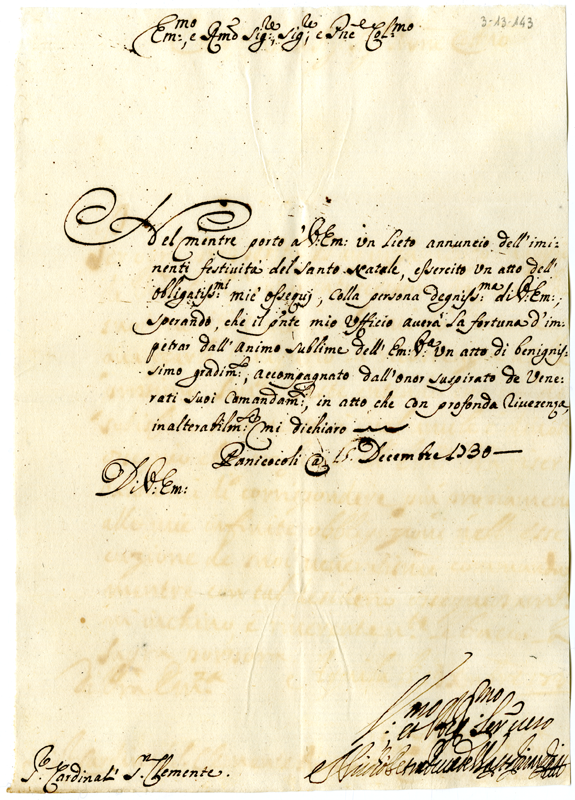 3-13-143
Em:mo, e Rmo Sig:re, Sig:re, e Pne Col:mo
Nel mentre porto à V: Em: un lieto annuncio dell'imi-
nenti festivita del Santo Natale, essercito un atto dell'
obligatiss:mi miei ossequj, colla persona degniss:ma di V: Em:,
sperando, che il pnte mio Ufficio averà la fortuna d'im-
petrar dall'Animo sublime dell'Em: V:ra un atto di benignis-
simo gradim:to, accompagnato dall'onor suspirato de Vene-
rati suoi Comandam:ti, in atto che con profonda riverenza,
inalterabilm:te mi dichiaro
Panicocoli @ 15. Decembre 1730
Di V: Em:
S:r Cardinal' S:n Clemente.